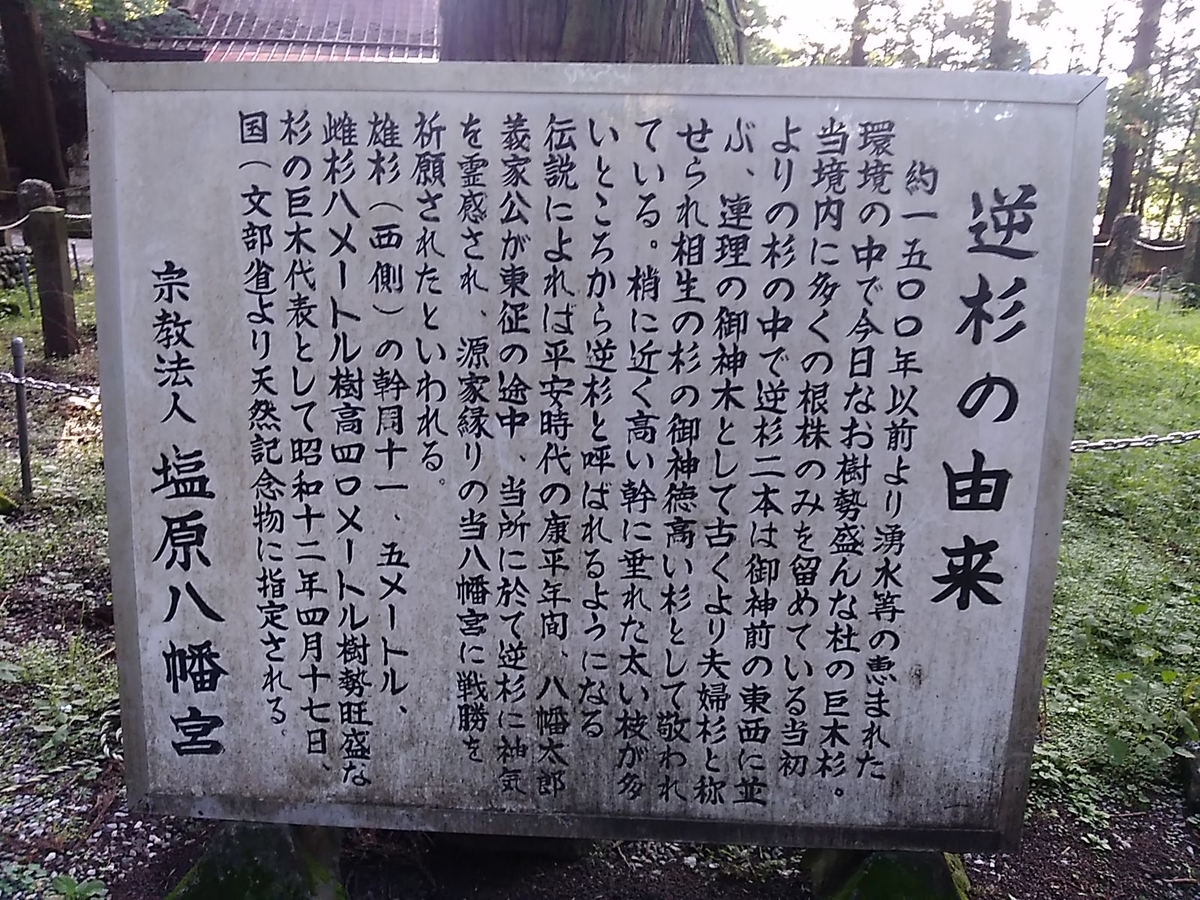 逆杉の由来
約一五〇〇年以前より湧水等の恵まれた
環境の中で今日なお樹勢盛んな杜の巨木杉。
当境内に多くの根株のみを留めている当初
よりの杉の中で逆杉二本は御神前の東西に並
ぶ、連理の御神木として古くより夫婦杉と称
せられ相生の杉の御神徳高い杉として敬われ
ている。梢に近く高い幹に垂れた太い枝が多
いところから逆杉と呼ばれるようになる
伝説によれば平安時代の康平年間、八幡太郎
義家公が東征の途中、当所に於て逆杉に神気
を霊感され、源家縁りの当八幡宮に戦勝を
祈願されたといわれる。
雄杉(西側)の幹周十一、五メートル、
雌杉八メートル樹高四〇メートル樹勢旺盛な
杉の巨木代表として昭和十二年四月十七日、
国(文部省より天然記念物に指定される、
宗教法人 塩原八幡宮